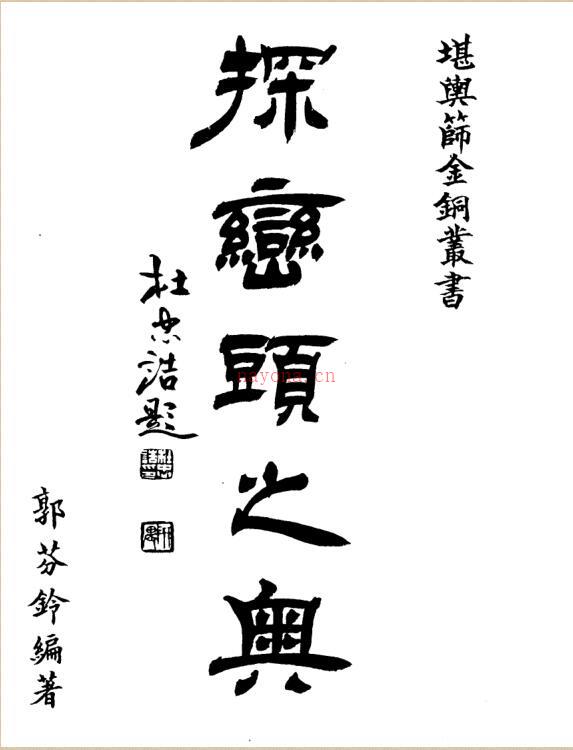 堪輿篩金銅叢書
探巒頭之奧
杜忠誥題
郭芬鈴編著
nayona.cn